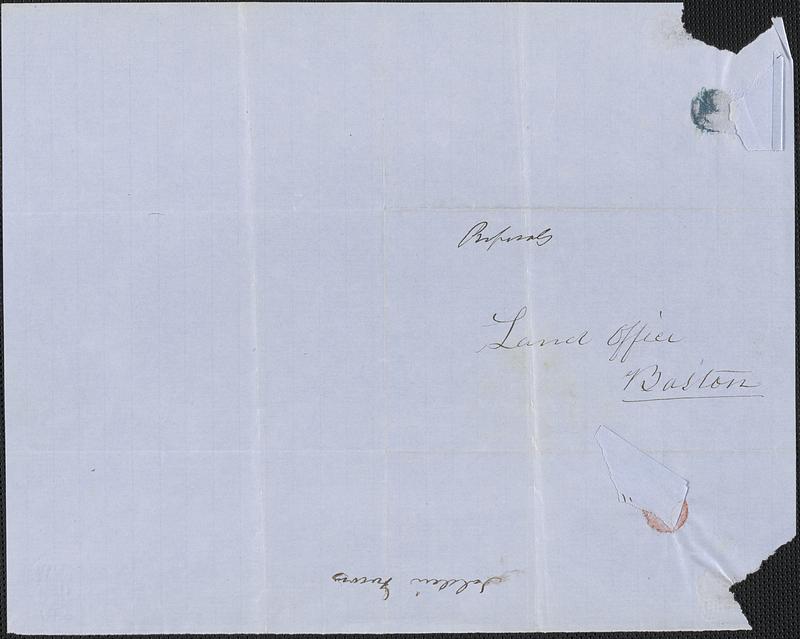 Proposals
Land Office
Boston